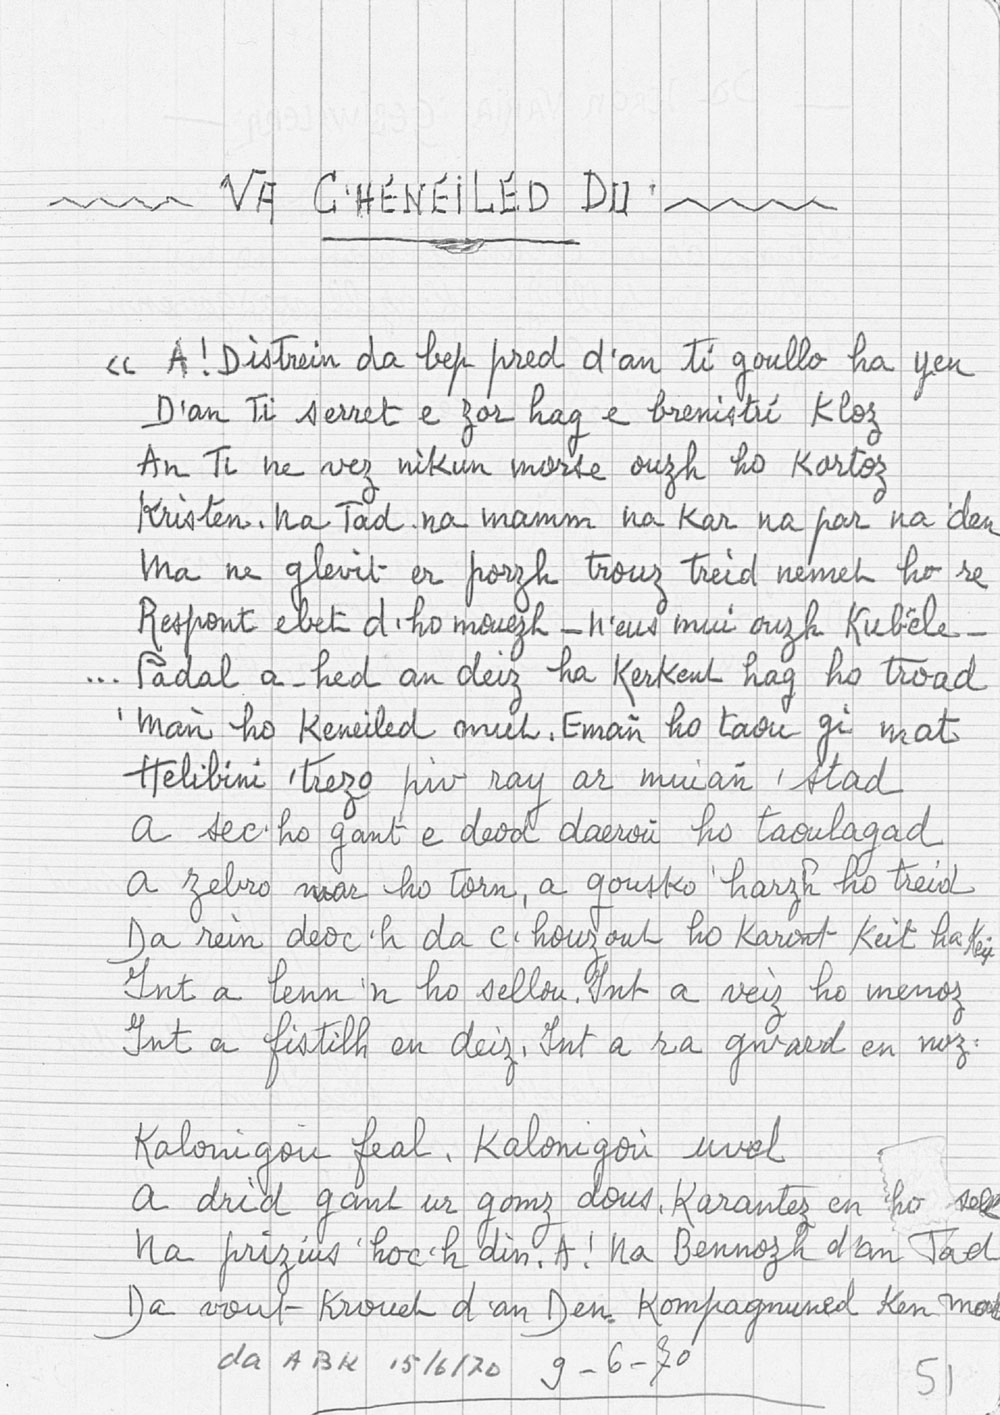 VA C'HENEILED DU
« A! Distrein da bep pred d'an ti goullo ha yen
D'an Ti serret e zor hag e brenistri Kloz
An Ti ne vez nikun morse ouzh ho Kortoz
Kristen. Na Tad. na mamm na Kar na par na den
Ma ne glevit er porzh trouz treid nemet ho re
Respont ebet d'ho mouezh – N'eus mui ouzh Kubële –
... Padal a-hed an deiz ha Kerkent hag ho troad
'mañ ho Keneiled mut. Emañ ho taou gi mat
Helibini 'trezo piv ray ar muiañ 'stad
A sec'ho gant e deod daeroù ho taoulagad
A zebro war ho torn, a gousko 'harzh ho treid
Da rein deoc'h da c'houzout ho Karont Keit ha Keit
Int a lenn 'n ho sellou. Int a veiz ho menoz
Int a fistilh en deiz. Int a ra gward en noz.
Kalonigoù feal. Kalonigoù uvel
A drid gant ur gomz dous. Karantez en ho sell
Na prizius 'hoc'h din. A! Na Bennozh d'an Tad
Da vout Krouet d'an Den. Kompagnuned Ken mat
da ABK 15/6/70 9-6-70
51